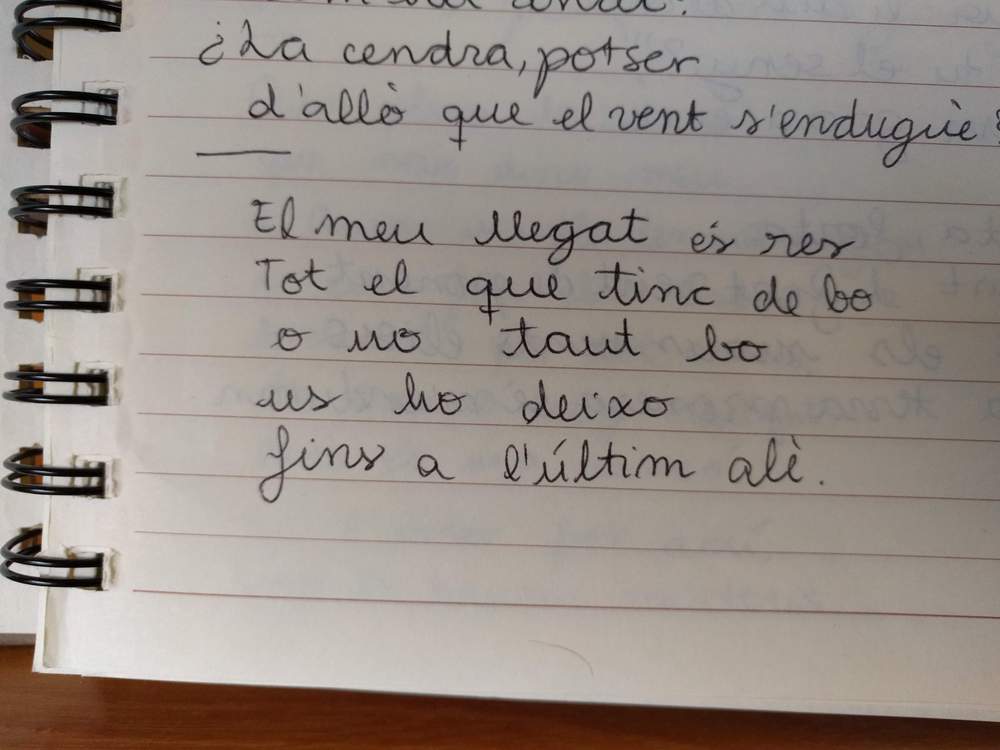 ¿La cendra, potser
d'allò que el vent s'endugué?
El meu llegat és res
Tot el que tinc de bo
o no tant bo
us ho deixo
fins a l'últim alè.